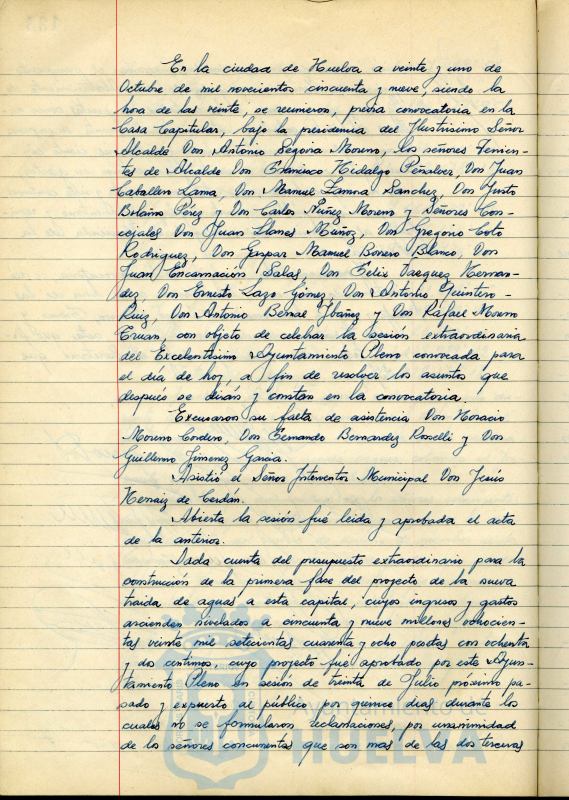 En la ciudad de Huelva a veinte y uno de
Octubre de mil novecientos cincuenta y nueve, siendo la
hora de las veinte, se reunieron, previa convocatoria en la
Casa Capitular, bajo la presidencia del Ilustrísimo Señor
Alcalde Don Antonio Segovia Moreno, los señores Tenien-
tes de Alcalde Don Francisco Hidalgo Peñalver, Don Juan
Caballero Lama, Don Manuel Zamora Sanchez, Don Justo
Bolaino Pérez y Don Carlos Núñez Moreno y Señores Con-
cejales Don Juan Llanes Muñoz, Don Gregorio Coto
Rodriguez, Don Gaspar Manuel Bonero Blanco, Don
Juan Encarnación Salas, Don Felix Vazquez Hernan-
dez, Don Ernesto Lazo Gómez, Don Antonio Quintero-
Ruiz, Don Antonio Bernal Ibáñez y Don Rafael Moreno
con objeto de celebrar la sesión extraordinaria
del Excelentísimo Ayuntamiento Pleno convocada para
el día de hoy, a fin de resolver los asuntos que
después se dirán y constan en la convocatoria.
Excusaron su falta de asistencia Don Horacio
Moreno Cordero, Don Fernando Bernardez Roselli y Don
Guillermo Jimenez Garcia.
Asistió el Señor Interventor Municipal Don Jesús
Herraiz de Cerdán.
Abierta la sesión fué leida y aprobada el acta
de la anterior.
Dada cuenta del presupuesto extraordinario para la
construcción de la primera fase del proyecto de la nueva
traida de aguas a esta capital, cuyos ingresos y gastos
ascienden nivelados a cincuenta y nueve millones ochocien-
tas veinte mil setecientas cuarenta y ocho pesetas con ochenta
y dos centimos, cuyo proyecto fué aprobado por este Ayun-
tamiento Pleno en sesión de treinta de Julio próximo pa-
sado y expuesto al público por quince dias durante los
cuales no se formularon reclamaciones, por unanimidad
de los señores concurrentes que son mas de las dos terceras
Ayuntamiento de
HUELVA